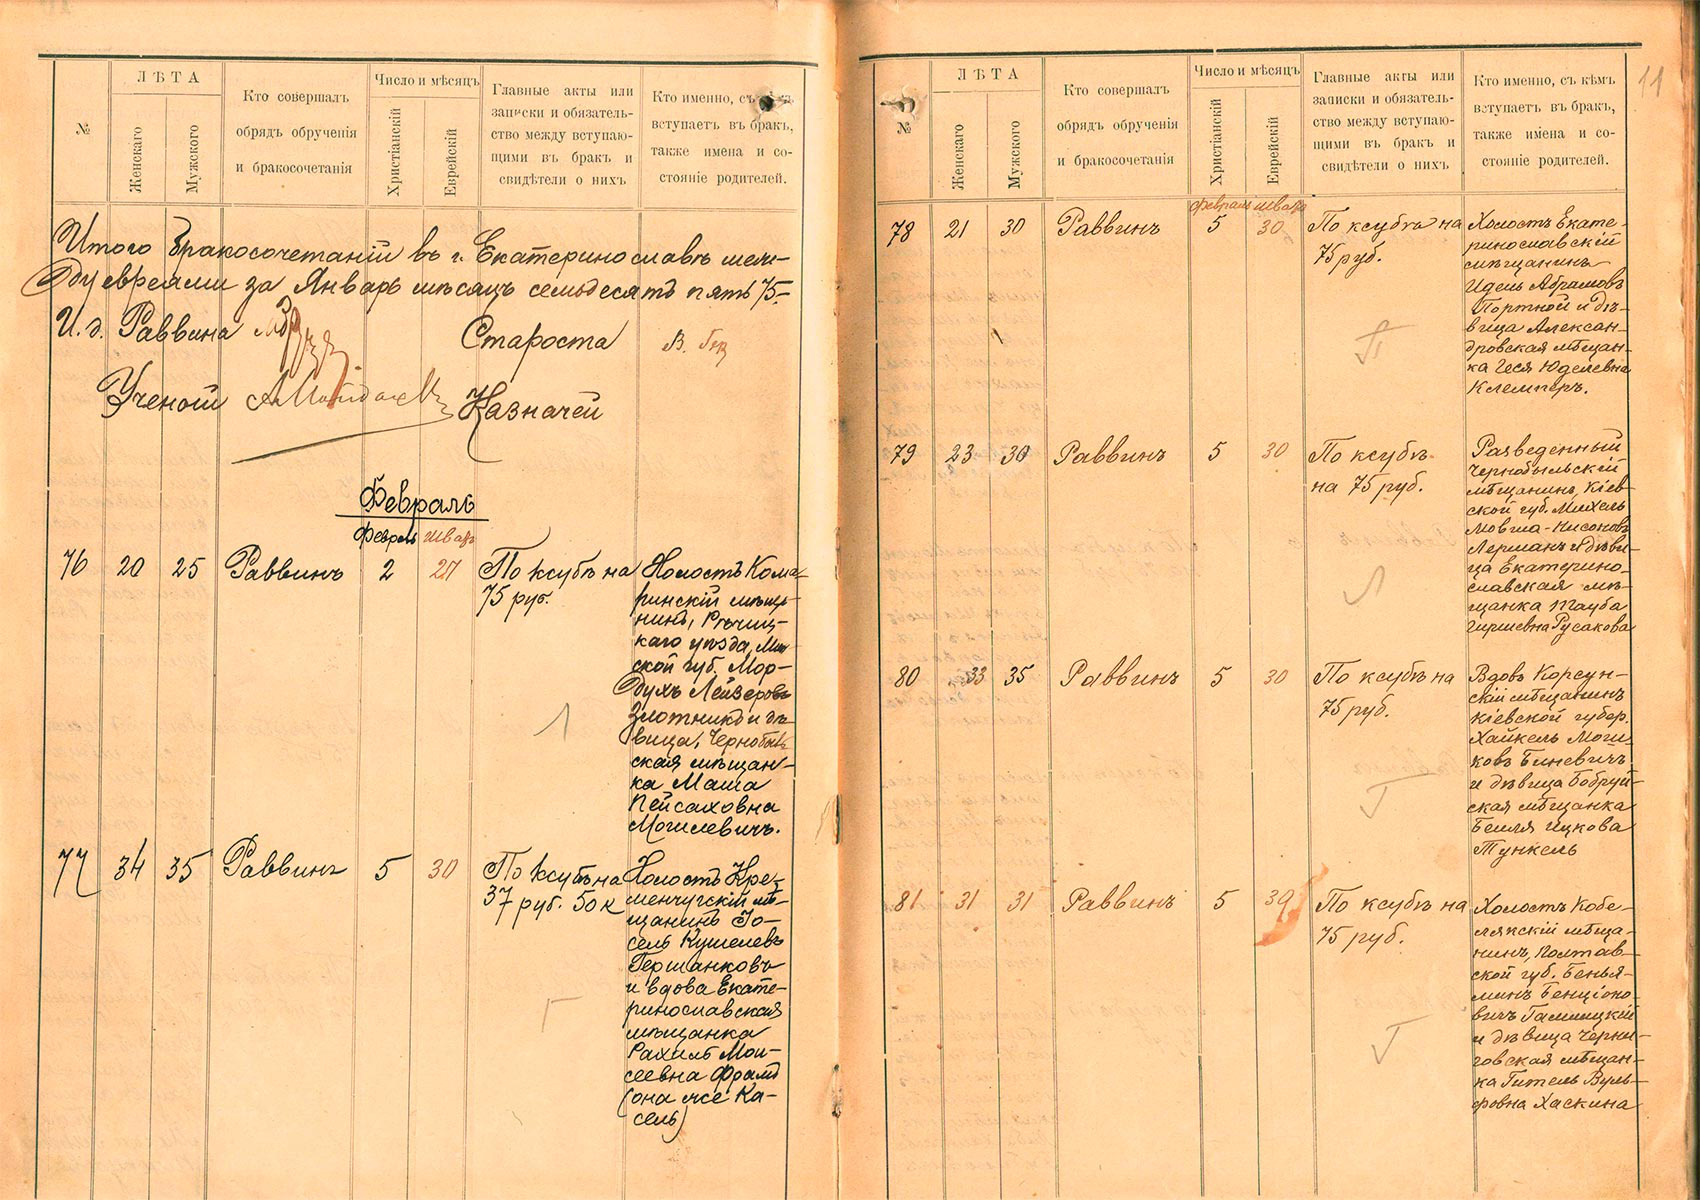 №
ЛѢТА
Женскаго
Мужского
Кто совершалъ
обрядъ обрученія
и бракосочетанія
Число и мѣсяцъ
Христіанскій
Еврейскій
Главные акты или
записки и обязатель-
ство между вступаю-
щими въ бракъ и
свидѣтели о нихъ
Кто именно, съ
вступаетъ въ бракъ,
также имена и со-
стояніе родителей.
Итого бракосочетаній въ г. Екатеринославѣ меж-
ду евреями за Январь мѣсяцъ семьдесятъ пять 75.-
И. д. Раввина
Староста
В.
Ученый
Казначей
Февраль
февраль шватъ
76 20 25 Раввинъ 2 27
По ксубѣ на
75 руб.
Холостъ Кома-
ринскій мѣща-
нинъ, Рѣчиц-
каго уѣзда, Мин
ской губ. Мор-
духъ Лейзеровъ
Злотникъ и дѣ-
вица, Чернобыль
ская мѣщан-
ка Маша
Пейсаховна
Могилевичъ.
77 34 35 Раввинъ 5 30
По ксубѣ на
37 руб. 50 к
Холостъ Кре-
менчугскій мѣ-
щанинъ Іо-
сель Кушелевъ
Гершанковъ
и вдова Екате-
ринославская
мѣщанка
Рахиль Мои-
сеевна Фрамъ
(она же Ка-
сель)
11
№
ЛѢТА
Женскаго
Мужского
Кто совершалъ
обрядъ обрученія
и бракосочетанія
Число и мѣсяцъ
Христіанскій
Еврейскій
Главные акты или
записки и обязатель-
ство между вступаю-
щими въ бракъ и
свидѣтели о нихъ
Кто именно, съ кѣмъ
вступаетъ въ бракъ,
также имена и со-
стояніе родителей.
февраль шватъ
78 21 30 Раввинъ 5 30
По ксубѣ на
75 руб.
Холостъ Екате-
ринославскій
мѣщанинъ
Идель Абрамовъ
Портной и дѣ-
вица Алексан-
дровская мѣщан-
ка Геся Юделевна
Клемперъ.
79 23 30 Раввинъ 5 30
По ксубѣ
на 75 руб.
Разведенный
Чернобыльскій
мѣщанинъ, Кіев-
ской губ. Михель
Мовша-Нисоновъ
Лерманъ и дѣви-
ца Екатерино-
славская мѣ-
щанка Тауба
Гиршевна Русакова
80 33 35 Раввинъ 5 30
По ксубѣ на
75 руб.
Вдовъ Корсун-
скій мѣщанинъ
Кіевской губер.
Хайкель Моги-
ковъ Биневичъ
и дѣвица Бобруй-
ская мѣщанка
Бейля Ицкова
Тункель
81 31 31 Раввинъ 5 30
По ксубѣ на
75 руб.
Холостъ Кобе-
лякскій мѣща-
нинъ, Полтав-
ской губ. Бенья-
минъ Бенціоно-
вичъ Галицкій
и дѣвица Черни-
говская мѣщан-
ка Гитель Вуль-
фовна Хаскина